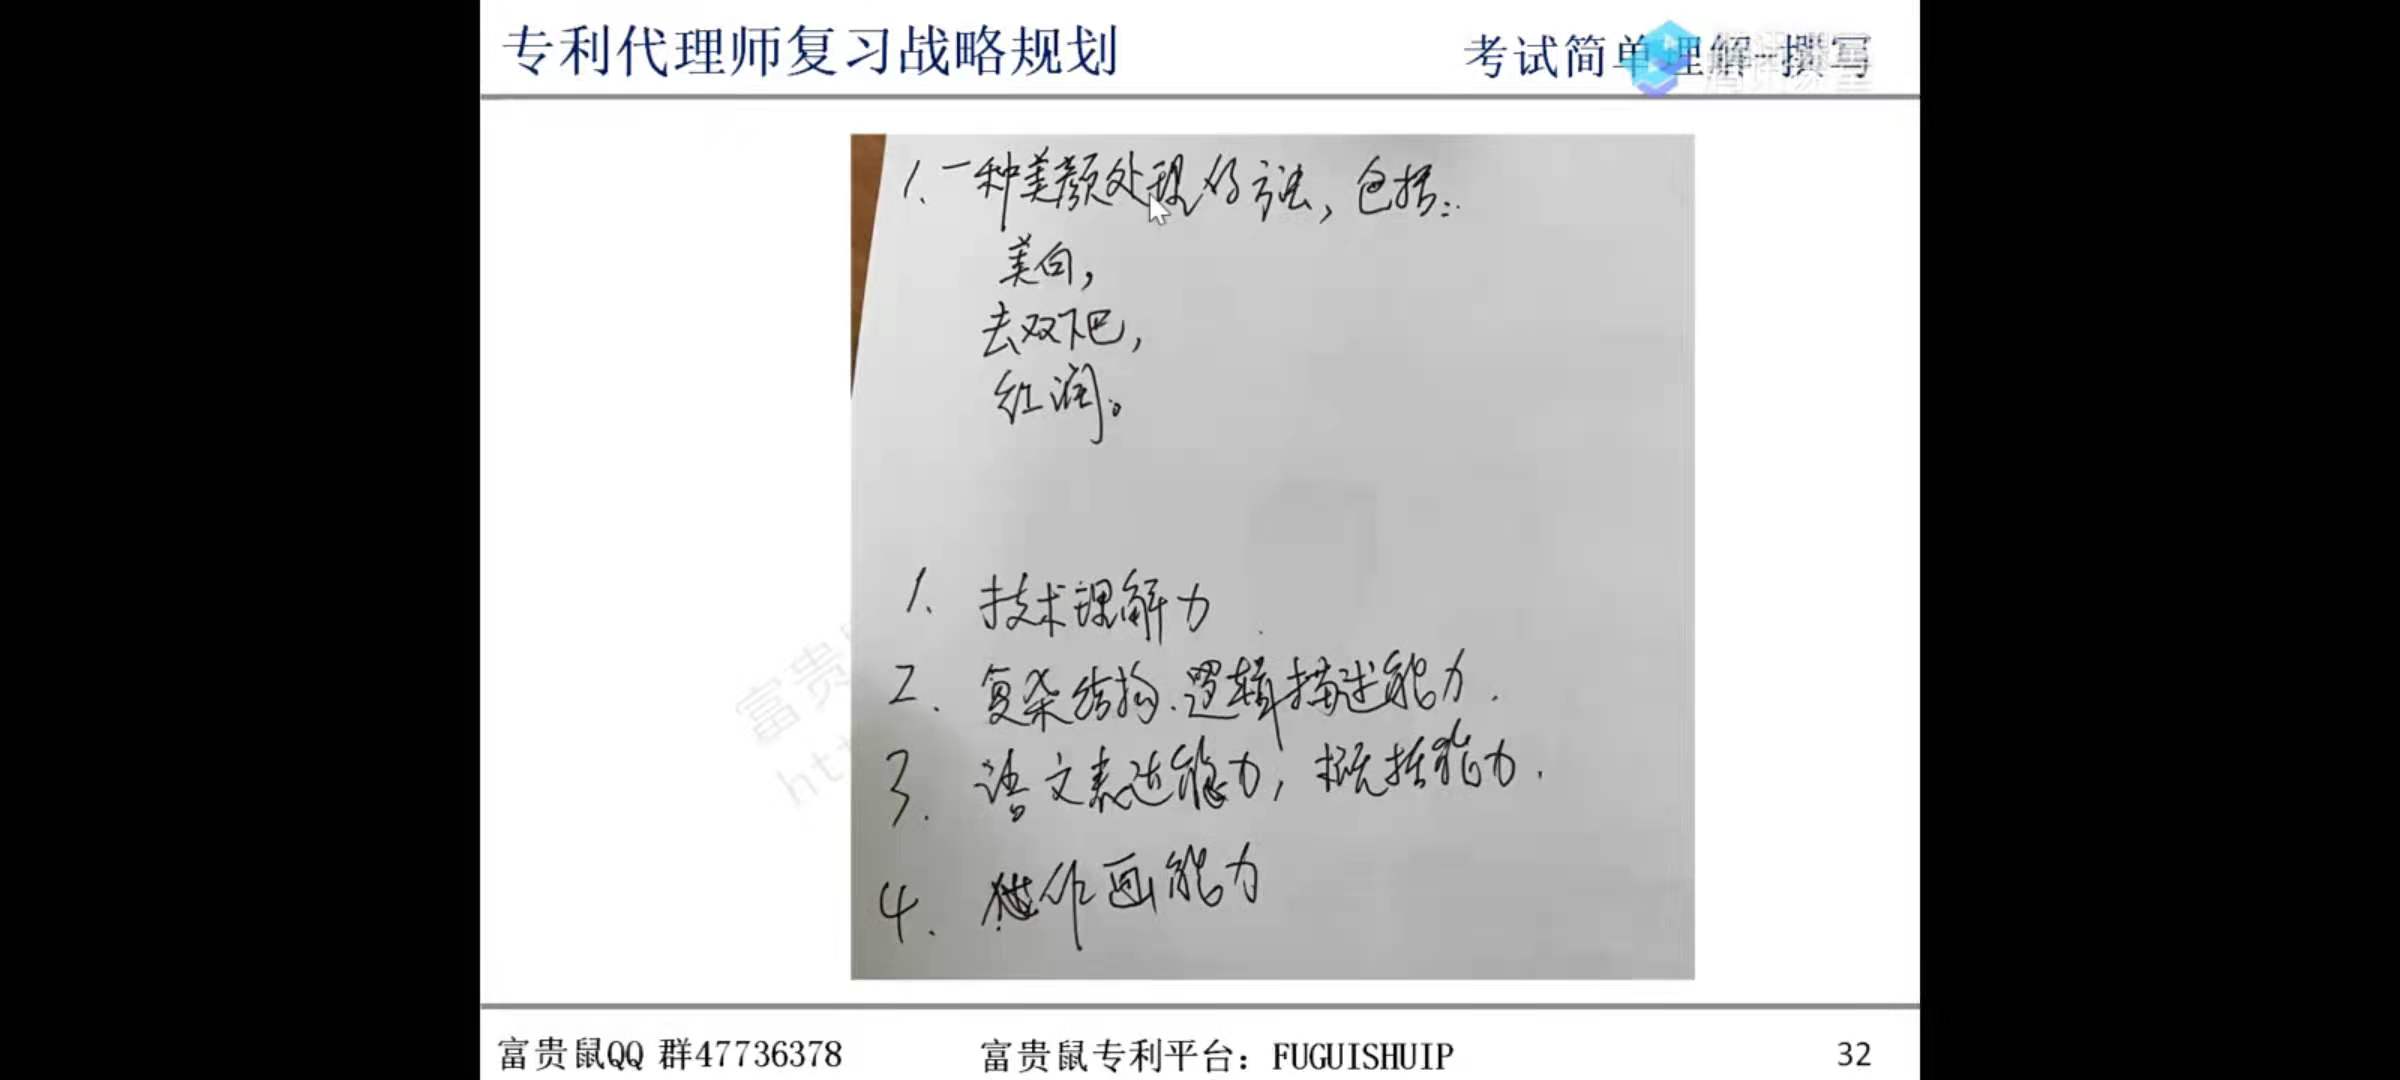 专利代理师复习战略规划
考试简单理解-撰写
1. 一种美颜处理的方法，包括：
美白，
去双下巴，
红润。
1. 技术理解力
2. 复杂结构、逻辑描述能力.
3. 语文表达能力，概括能力.
4. 作画能力
富贵
htt
富贵鼠QQ 群47736378
富贵鼠专利平台：FUGUISHUIP
32